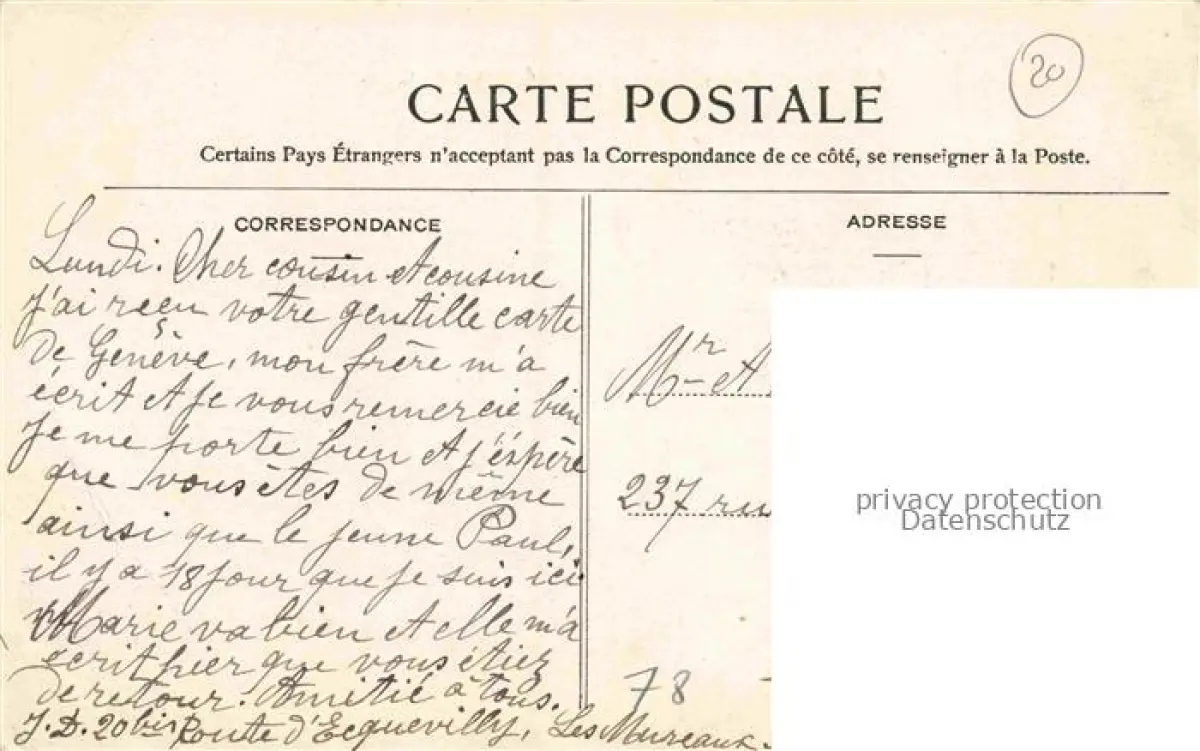 20
CARTE POSTALE
Certains Pays Étrangers n'acceptant pas la Correspondance de ce côté, se renseigner à la Poste.
CORRESPONDANCE
Lundi. Cher cousin et cousine
J'ai reçu votre gentille carte
de Genève, mon frère m'a
écrit et je vous remercie bien
je me porte bien et j'éspère
que vous êtes de même
ainsi que le jeune Paul,
il y a 18 jour que je suis ici
Marie va bien et elle m'a
écrit hier que vous étiez
de retour. Amitié à tous.
J. D. 20bis Route d'Ecquevilly, Les Mureaux.
ADRESSE
Mr A
237 ru
78
privacy protection
Datenschutz